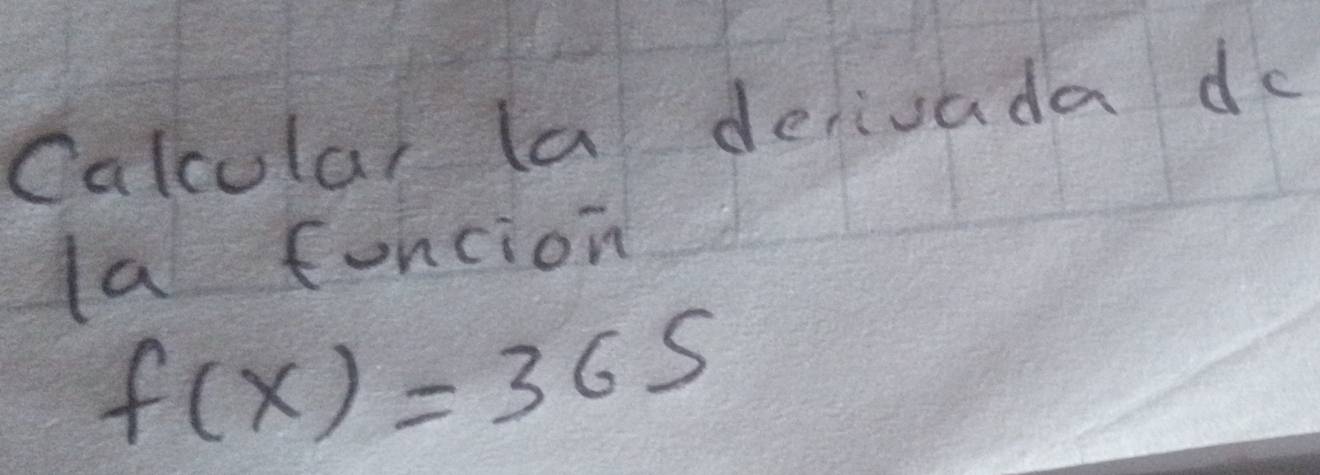 Calcular la derivada de
la función
f(x) = 365